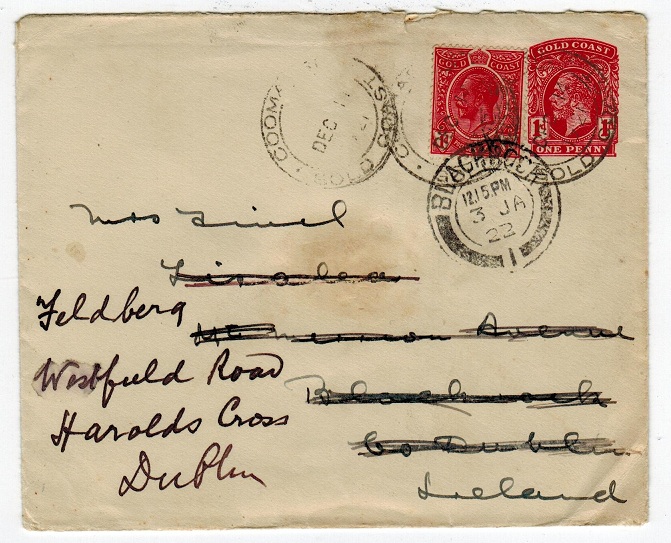 GOLD COAST
GOLD COAST
1D 1D
ONE PENNY
COOMA
DEC
GOLD COAST
GOLD
BLACKROCK
12.15.PM
3 JA
22
1
Mrs
Lisalea
Mt Merrion Avenue
Blackrock
Co Dublin
Ireland
Feldberg
Westfield Road
Harolds Cross
Dublin